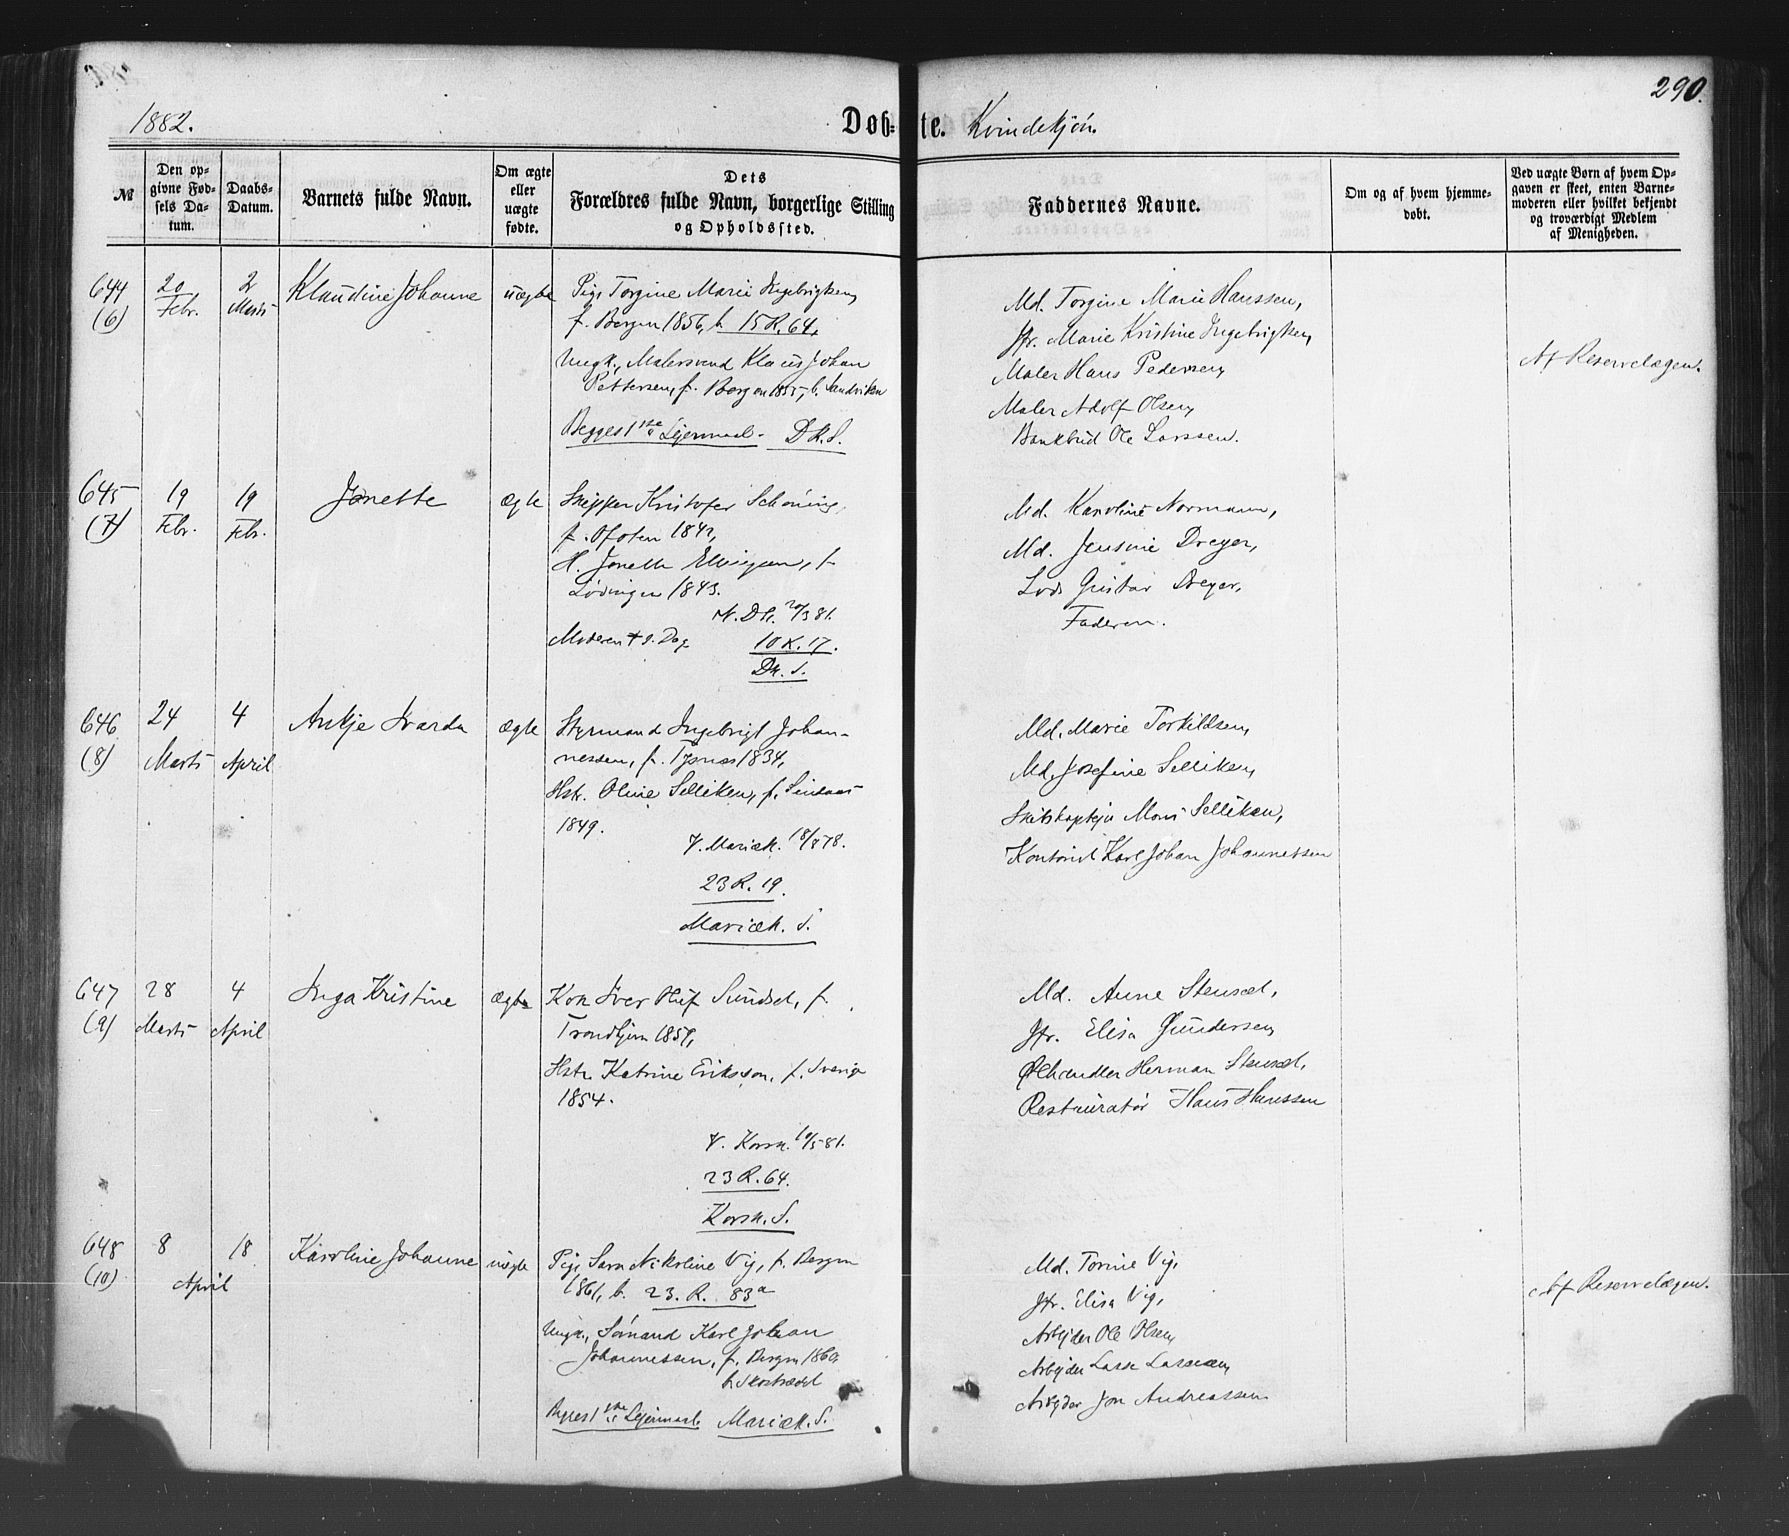 1882.
Døb-te. Kvindekjön.
290.
№
Den opgivne Fødsels Datum.
Daabs-Datum.
Barnets fulde Navn.
Om ægte eller uægte fødte.
Dets Forældres fulde Navn, borgerlige Stilling og Opholdssted.
Faddernes Navne.
Om og af hvem hjemmedøbt.
Ved uægte Børn af hvem Opgaven er skeet, enten Barnemoderen eller hvilket bekjendt og troværdigt Medlem af Menigheden.
644 (6)
20 Febr.
2 Marts
Klaudine Johanne
uægte
Pige Torgine Marie Ingebrigtsen,
f. Bergen 1856, b. 15 R. 64,
Ungk., Malersvend Klaus Johan
Pettersen, f. Bergen 1855, b. Sandviken
Begges 1ste Lejermaal. DK. S.
Md. Torgine Marie Hanssen,
Jfr. Marie Kristine Ingebrigtsen,
Maler Hans Pedersen,
Maler Adolf Olsen,
Bankbud Ole Larssen.
Af Reservelægen.
645 (7)
19 Febr.
19 Febr.
Jonette
ægte
Skipper Kristofer Schöning,
f. Ofoten 1842,
H. Jonette, f.
Lödingen 1843.
N. DK. 20/3 81.
Moderen † s. Dag
10 R. 17.
DK. S.
Md. Karoline Normann,
Md. Jensine Dreyer,
Lods Gustav Dreyer,
Faderen.
646 (8)
24 Marts
4 April
Antje Svarda
ægte
Styrmand Ingebrigt Johan-
nessen, f. Tysnes 1834,
Hstr. Oline Selliken, f.
1849.
V. Mariæk. 18/8 78.
23 R. 19.
Mariæk. S.
Md. Marie Torkildsen,
Md. Josefine Selliken,
Mons Selliken,
Kontorist Karl Johan Johannessen
647 (9)
28 Marts
4 April
Inga Kristine
ægte
Kok Iver Oluf Sundset, f.
Trondhjem 1857,
Hstr. Katrine Eriksson, f. Sverige
1854.
V. Korsk. 10/5 81.
23 R. 64.
Korsk. S.
Md. Anne Stensæt,
Jfr. Elisa Gundersen,
Ølhandler Herman Stensæt,
Restauratør Hans Hanssen
648 (10)
8
18
April
Karoline Johanne
uægte
Pige Sara Nikoline Vig, f. Bergen
1861, b. 23. R. 83a
Ungk., Sömand Karl Johan
Johannessen, f. Bergen 1860,
b. Skostrædet
Begges 1ste Lejermaal. Mariæk. S.
Md. Torine Vig,
Jfr. Elisa Vig,
Arbejder Ole Olsen,
Arbejder Lasse Lassesen,
Arbejder Jon Andreassen
Af Reservelægen.